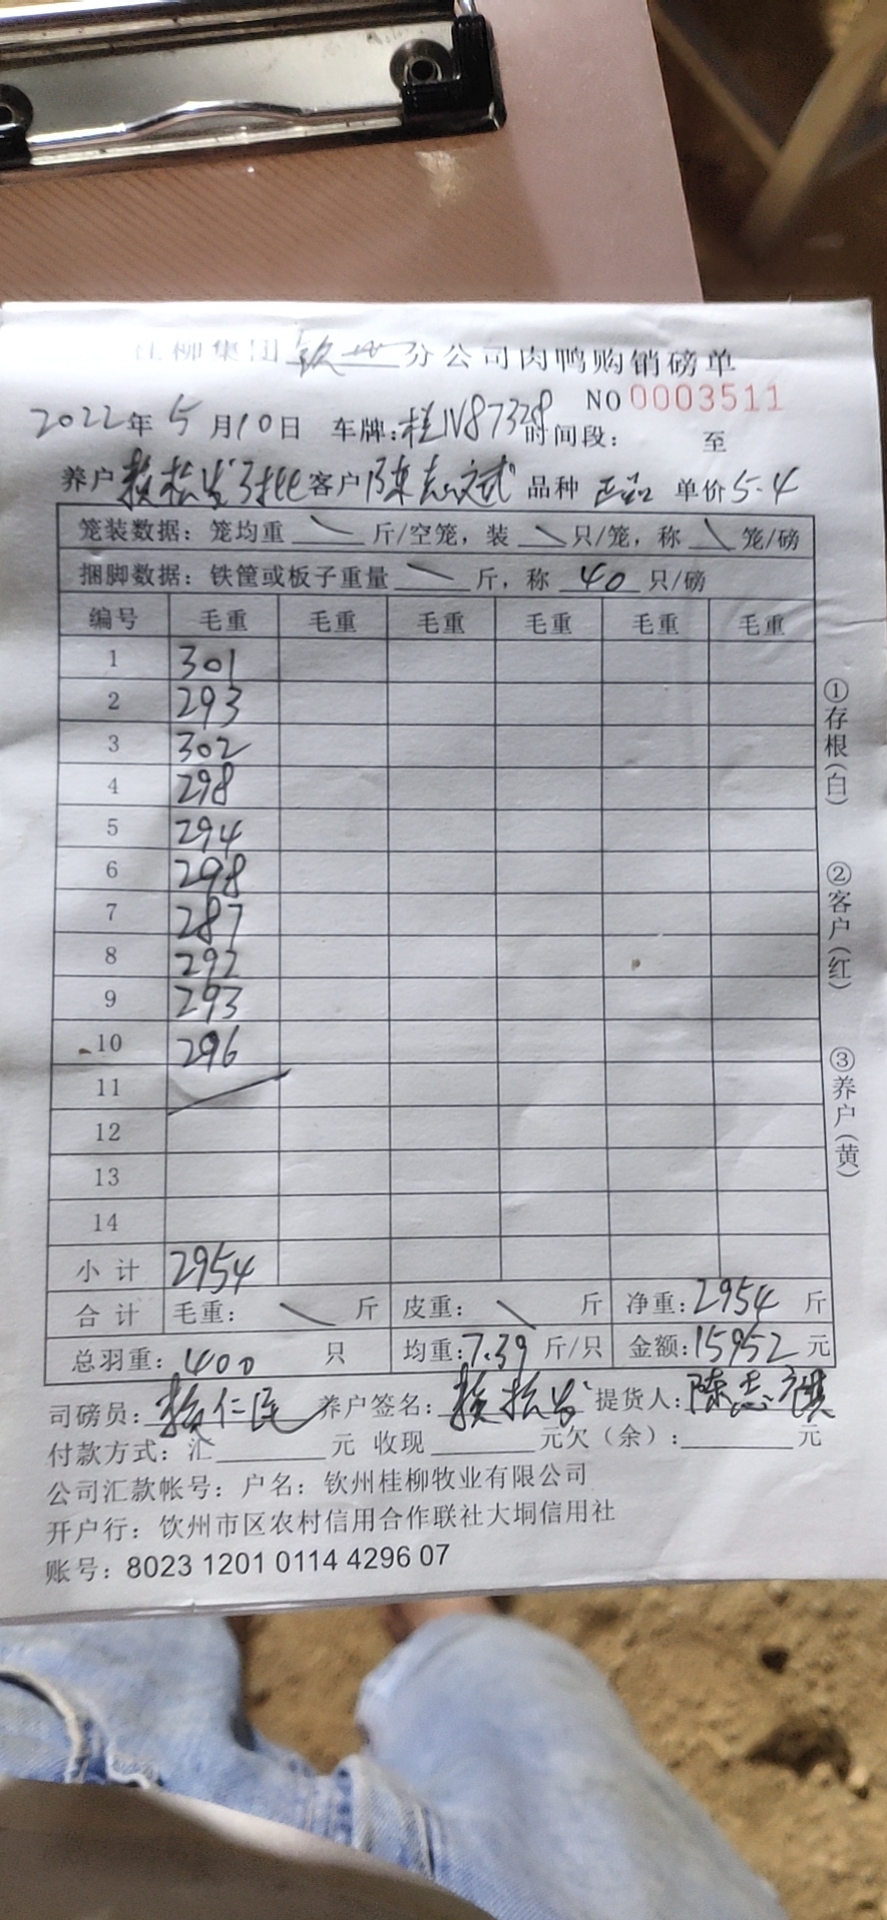 桂柳集团钦州分公司肉鸭购销磅单
NO 0003511
2022年5月10日 车牌:桂N87328 时间段: 至
养户 赖松发3批 客户 陈志斌 品种 正品 单价 5.4
笼装数据: 笼均重 斤/空笼, 装 只/笼, 称 笼/磅
捆脚数据: 铁筐或板子重量 斤, 称 40 只/磅
编号 毛重 毛重 毛重 毛重 毛重 毛重
1 301
2 293
3 302
4 298
5 294
6 298
7 287
8 292
9 293
10 296
11
12
13
14
小计 2954
合计 毛重: 斤 皮重: 斤 净重: 2954 斤
总羽重: 400 只 均重: 7.39 斤/只 金额: 15952 元
司磅员: 赖仁民 养户签名: 赖松发 提货人: 陈志
付款方式: 汇 元 收现 元欠(余): 元
公司汇款帐号: 户名: 钦州桂柳牧业有限公司
开户行: 钦州市区农村信用合作联社大垌信用社
账号: 8023 1201 0114 4296 07
①存根(白)
②客户(红)
③养户(黄)